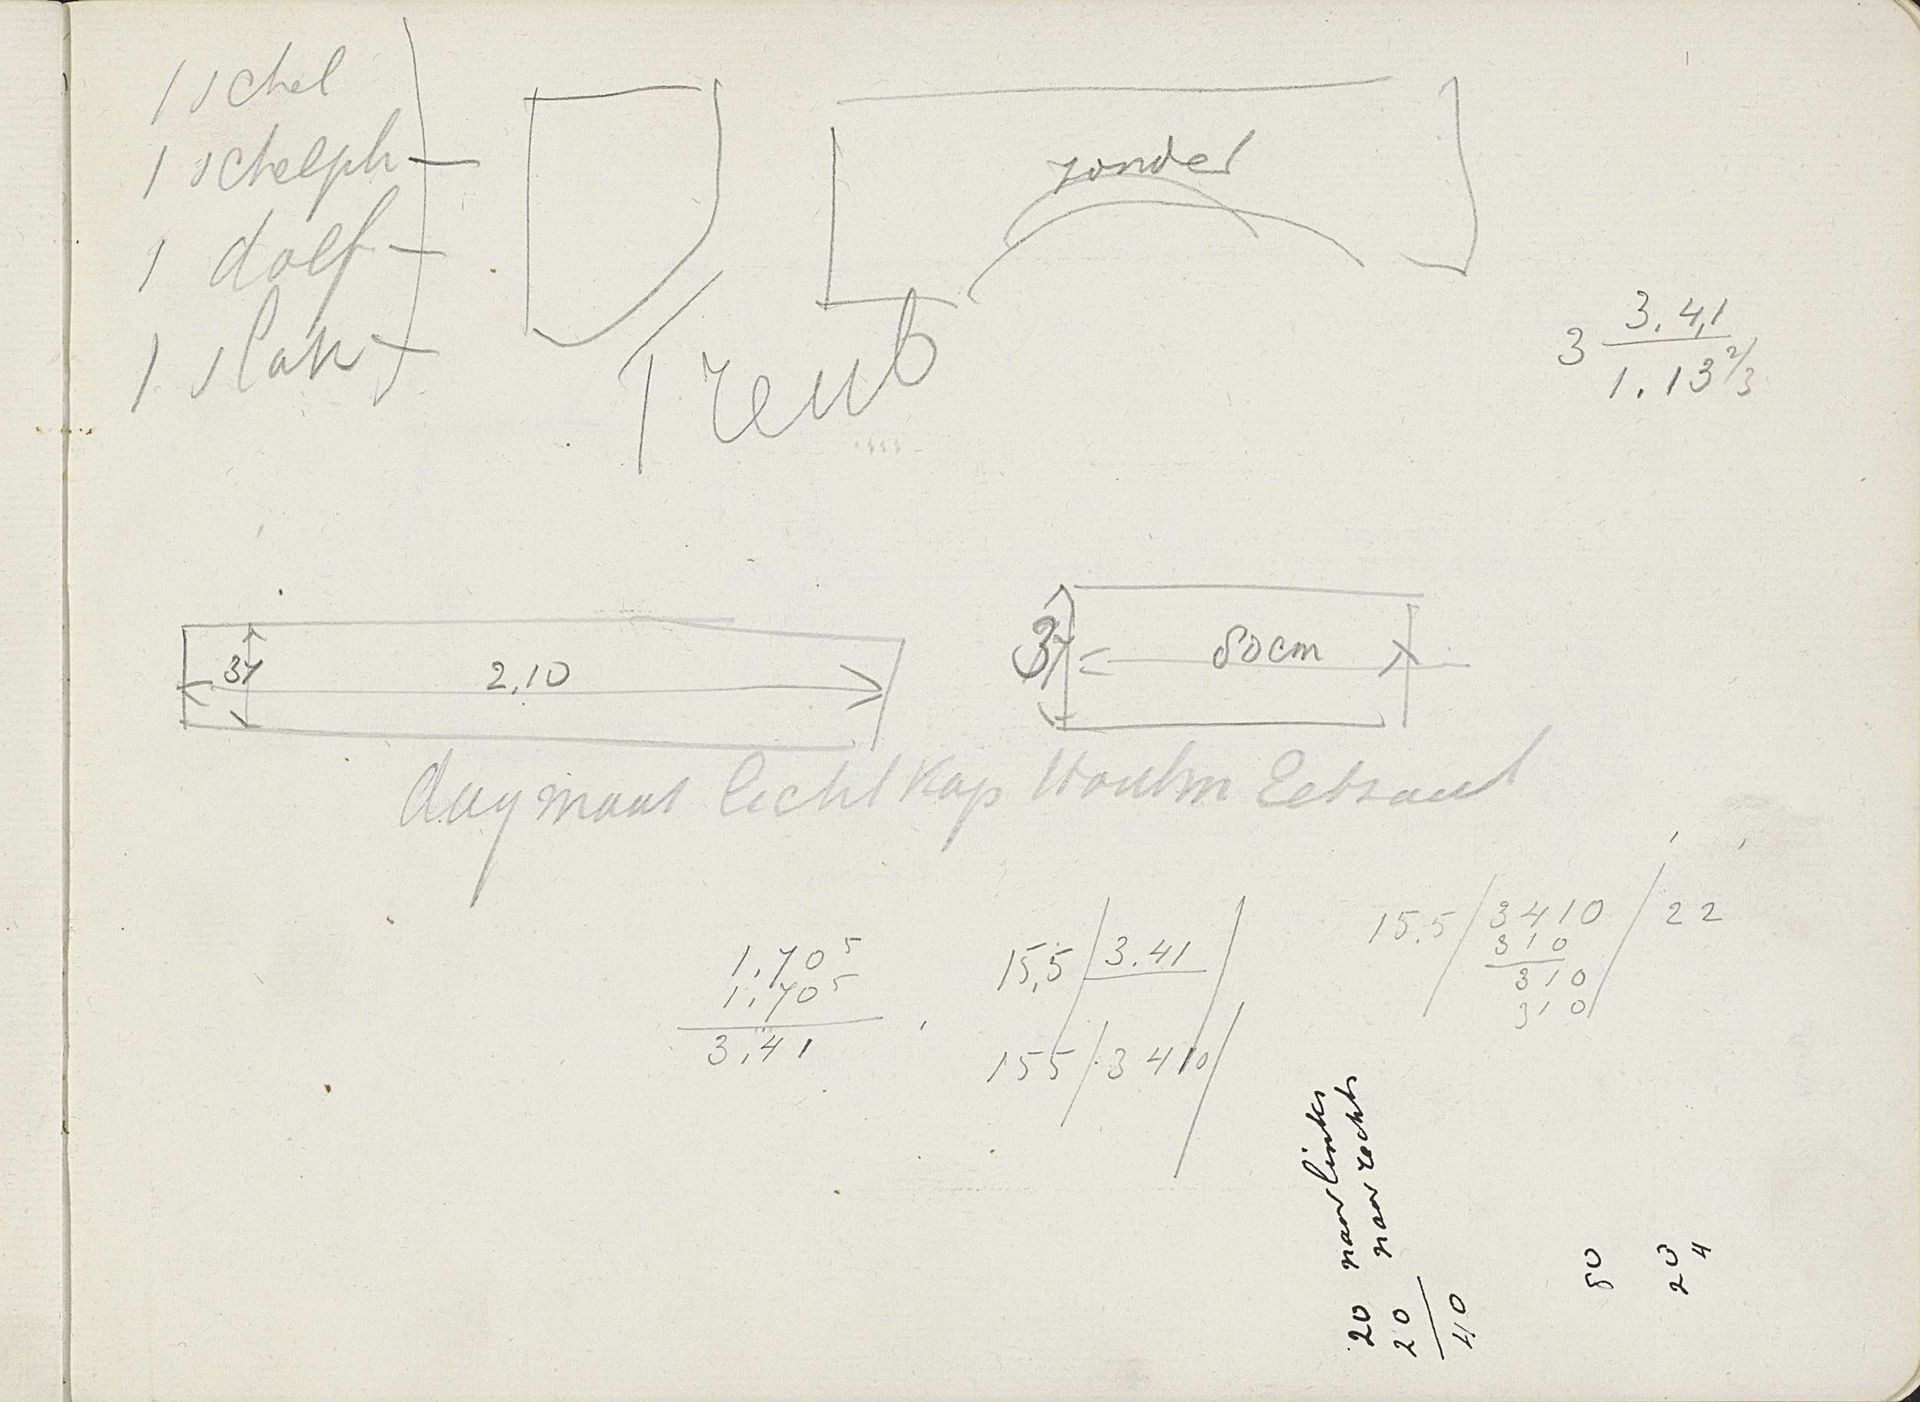 1 schel
1 schelph
1 dolf
1 slak
Treub
zonder
3 3.41
1.13 2/3
37 2,10
37 80cm
dagmaat licht kap
1.70 5
1.70 5
3.41
15,5 / 3.41 /
155 / 3410 /
15.5 / 3410 / 22
310
310
310
20 naar links
20 naar rechts
40
80
20
4